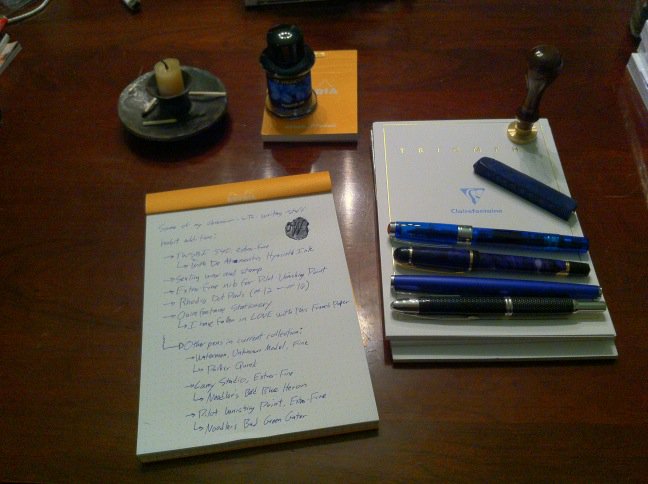 DIA
TRIOMPHE
Clairefontaine
Some of my obsession with writing stuff
habit addition:
→ TWSBI 540, extra-fine
↳ with De Atramentis Hyacinth Ink
→ Sealing wax and stamp
→ Extra fine nib for Pilot Vanishing Point
→ Rhodia Dot Pads (no 12 16)
→ Clairefontaine Stationery
↳ I have fallen in LOVE with this French Paper
↳ Other pens in current collection:
→ Waterman, Unknown Model, Fine
↳ Parker Quink
→ Lamy Studio, Extra-Fine
↳ Noodler's Bad Blue Heron
→ Pilot Vanishing Point, Extra-Fine
↳ Noodlers Bad Green Gator